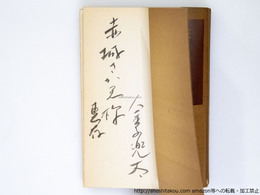 赤城さかえ様
恵存
金子兜太
http://ahoshitakou.com amazon等への転載・加工禁止